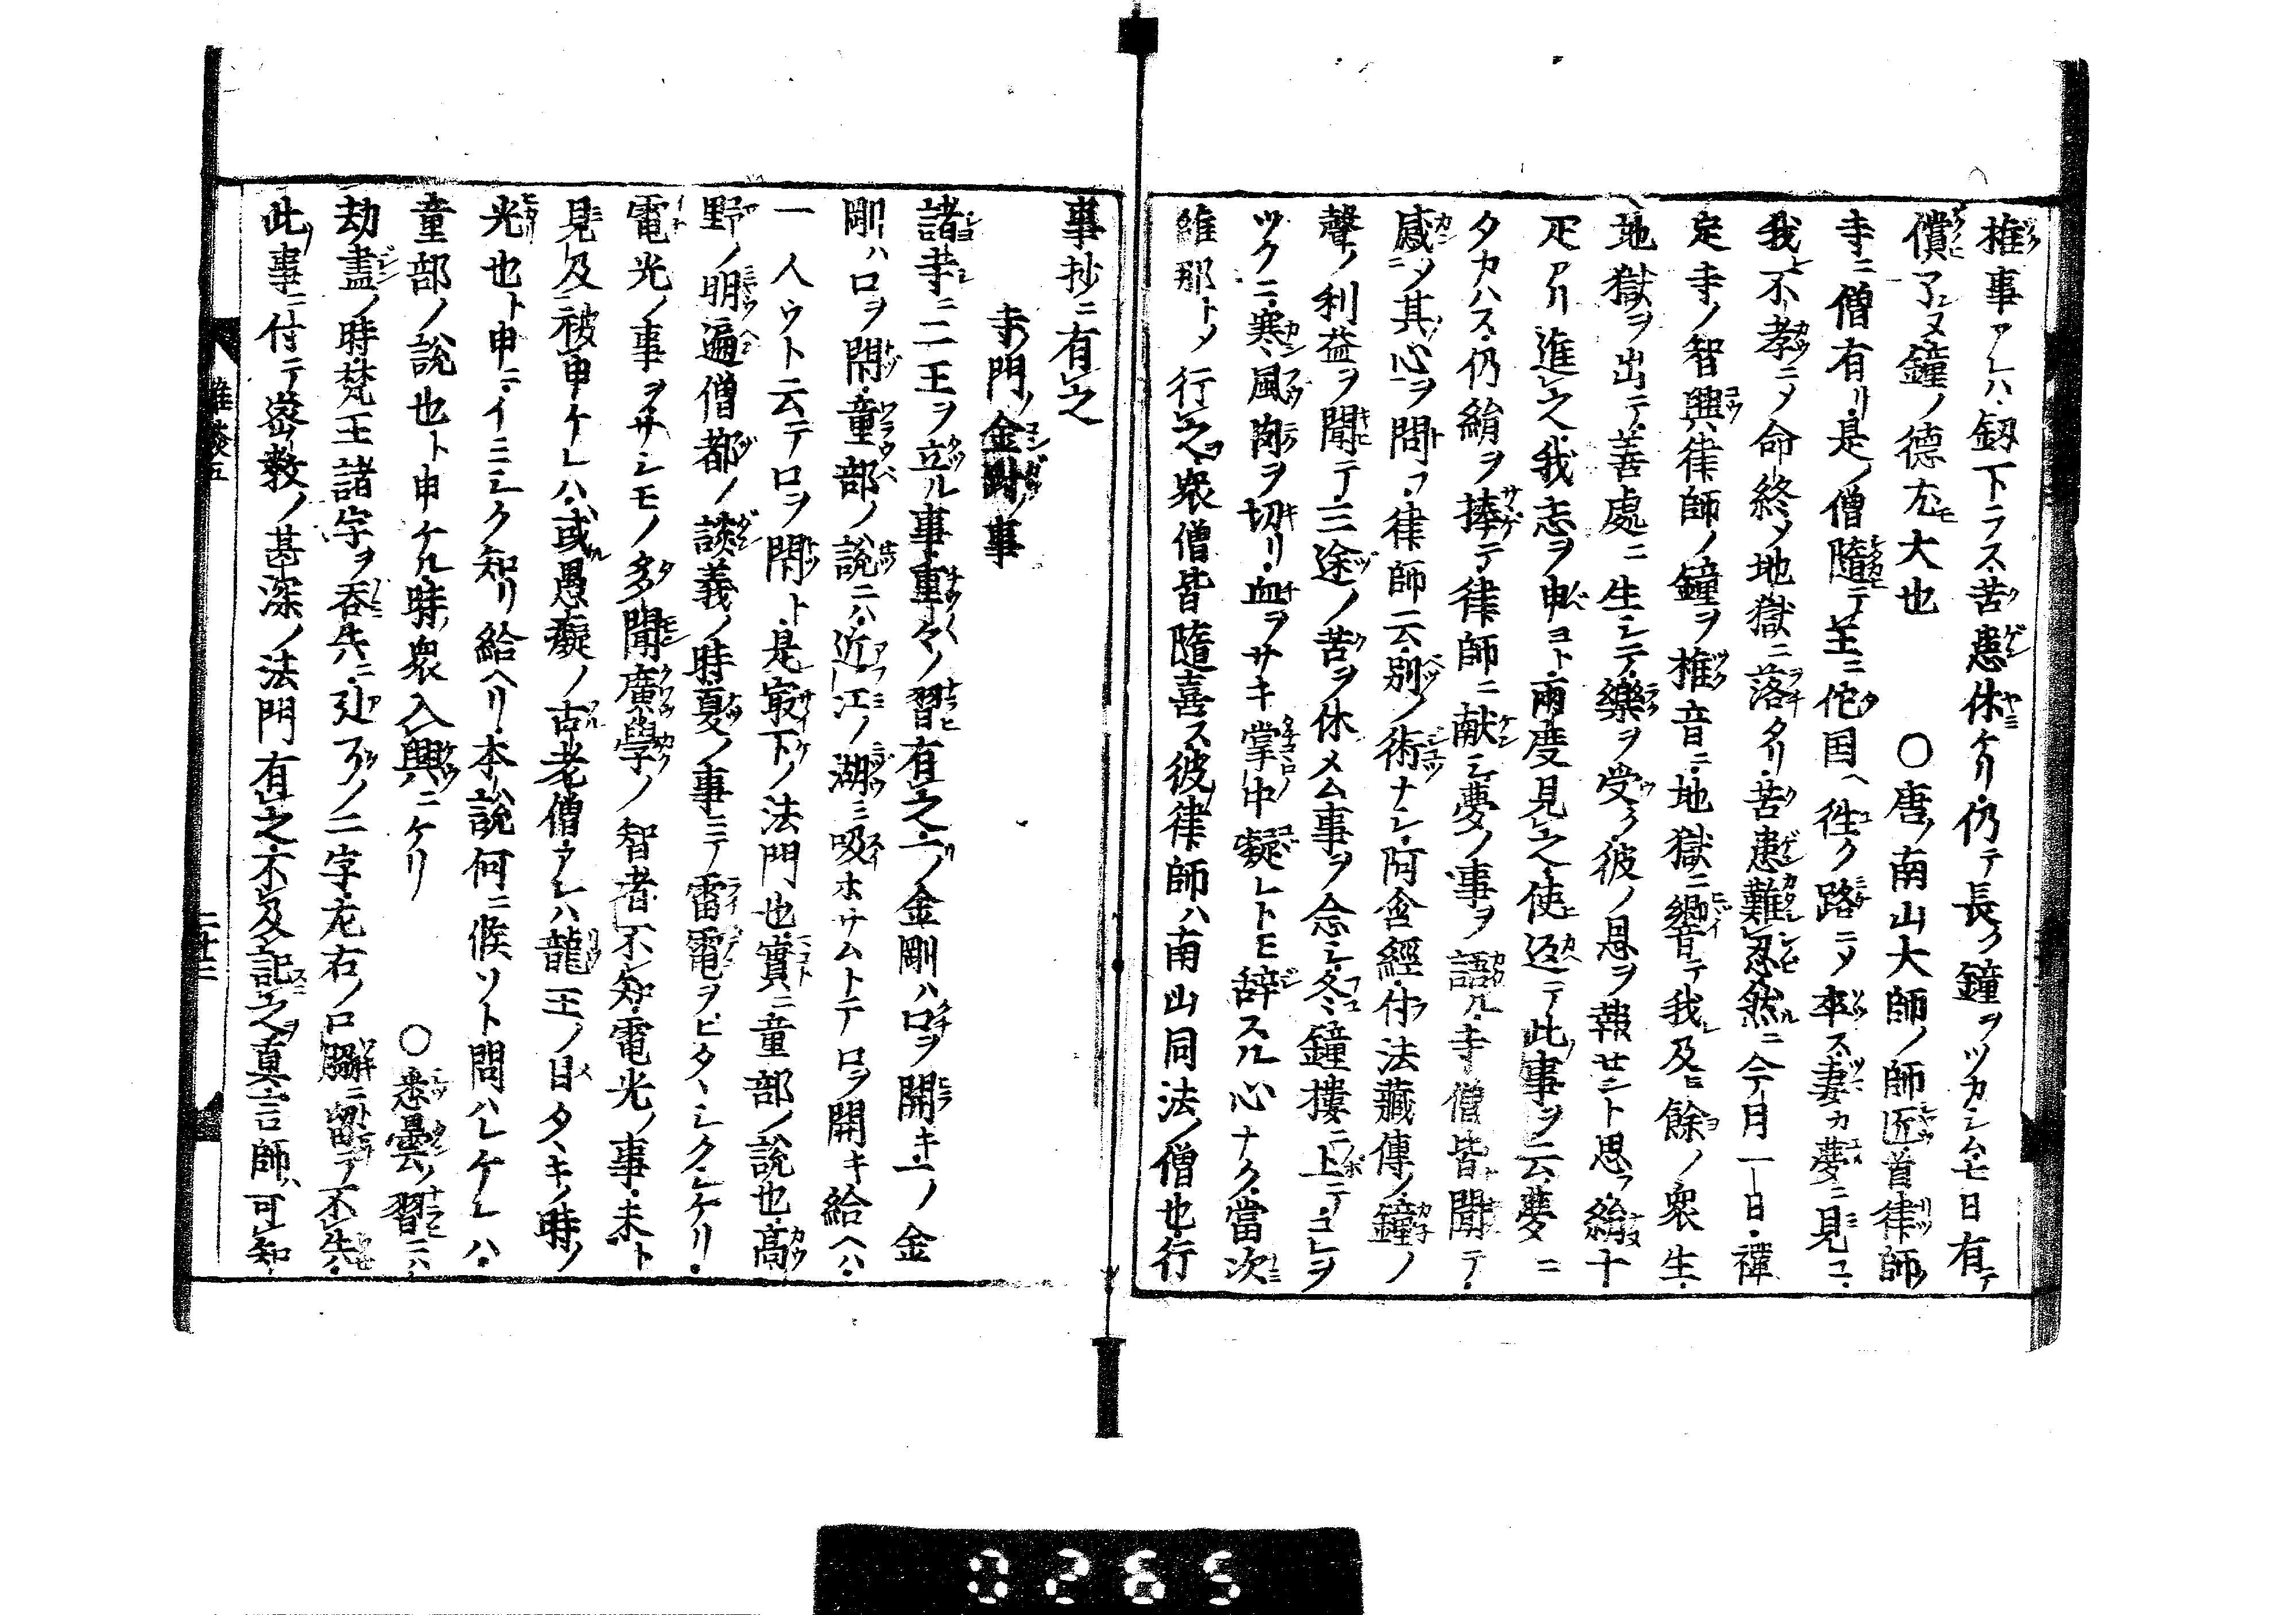 椎事アレハ釼下ラス苦患休ケリ仍テ長ク鐘ヲツカシム七日有テ
償了ヌ鐘ノ徳尤大也　　〇唐ノ南山大師ノ師匠首律師
寺ニ僧有リ是ノ僧隨テ王ニ佗国ヘ徃ク路ニメ卒ス妻カ夢ニ見ユ
我不孝ニメ命終メ地獄ニ落タリ苦患難忍然ニ今月一日禪
定寺ノ智興律師ノ鐘ヲ椎音ニ地獄ニ響テ我及ヒ餘ノ衆生
地獄ヲ出テ善處ニ生シテ樂ヲ受ク彼ノ恩ヲ報セント思フ絹十
疋アリ進之我志ヲ申ヨト兩度見之使返テ此事ヲ云夢ニ
タカハス仍絹ヲ捧テ律師ニ献シ夢ノ事ヲ語ル寺僧皆聞テ
感メ其心ヲ問フ律師云別ノ術ナシ阿含經付法藏傳ノ鐘ノ
聲ノ利益ヲ聞テ三途ノ苦ヲ休メム事ヲ念シ冬鐘樓ニ上テコレヲ
ツクニ寒風肉ヲ切リ血ヲサキ掌中凝レトモ辞スル心ナク當次
維那トメ行之衆僧皆隨喜ス彼律師ハ南山同法ノ僧也行
事抄ニ有之
寺門ノ金剛ノ事
諸寺ニ二王ヲ立ル事重々ノ習有之一ノ金剛ハ口ヲ開キ一ノ金
剛ハ口ヲ閇童部ノ説ニハ近江ノ湖ミ吸ホサムトテ口ヲ開キ給ヘハ
一人ウト云テ口ヲ閇ト是冣下ノ法門也實ニ童部ノ説也高
野ノ明遍僧都ノ談義ノ時夏ノ事ミテ雷電ヲヒタヽシクシケリ
電光ノ事ヲサシモノ多聞廣學ノ智者不知電光ノ事未ト
見及被申ケレハ或愚癡ノ古老僧アレハ龍王ノ目タヽキノ時ノ
光也ト申ニイミシク知リ給ヘリ本説何ニ候ソト問ハレケレハ
童部ノ説也ト申ケル時衆人興ニケリ　　〇悉曇ノ習ニハ
劫盡ノ時梵王諸字ヲ呑失ニ𠃋ノ二字左右ノ口脇ニ留テ不失
此事ニ付テ密教ノ甚深ノ法門有之不及記之真言師ハ可知
雜談五
二廿二
0265